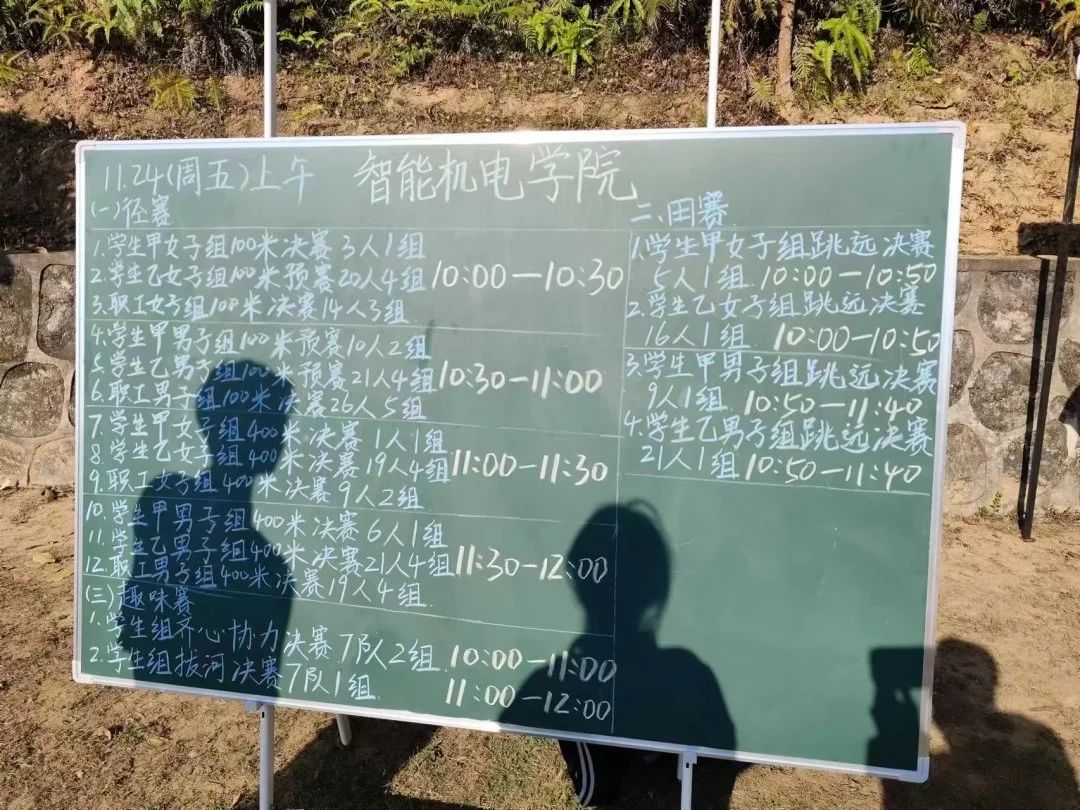 11.24(周五)上午 智能机电学院
(一)径赛
1.学生甲女子组100米决赛3人1组
2.学生乙女子组100米预赛20人4组
10:00—10:30
3.职工女子组100米决赛14人3组
4.学生甲男子组100米预赛10人2组
5.学生乙男子组100米预赛21人4组
10:30—11:00
6.职工男子组100米决赛26人5组
7.学生甲女子组400米决赛1人1组
8.学生乙女子组400米决赛19人4组
11:00—11:30
9.职工女子组400米决赛9人2组.
10.学生甲男子组400米决赛6人1组
11.学生乙男子组400米决赛21人4组
11:30—12:00
12.职工男子组400米决赛19人4组.
(三)趣味赛
1.学生组齐心协力决赛7队2组.10:00—11:00
2.学生组拔河决赛7队1组. 11:00—12:00
二.田赛.
1.学生甲女子组跳远决赛
5人1组.10:00—10:50
2.学生乙女子组跳远决赛
16人1组 10:00—10:50
3.学生甲男子组跳远决赛
9人1组 10:50—11:40
4.学生乙男子组跳远决赛
21人1组10:50—11:40